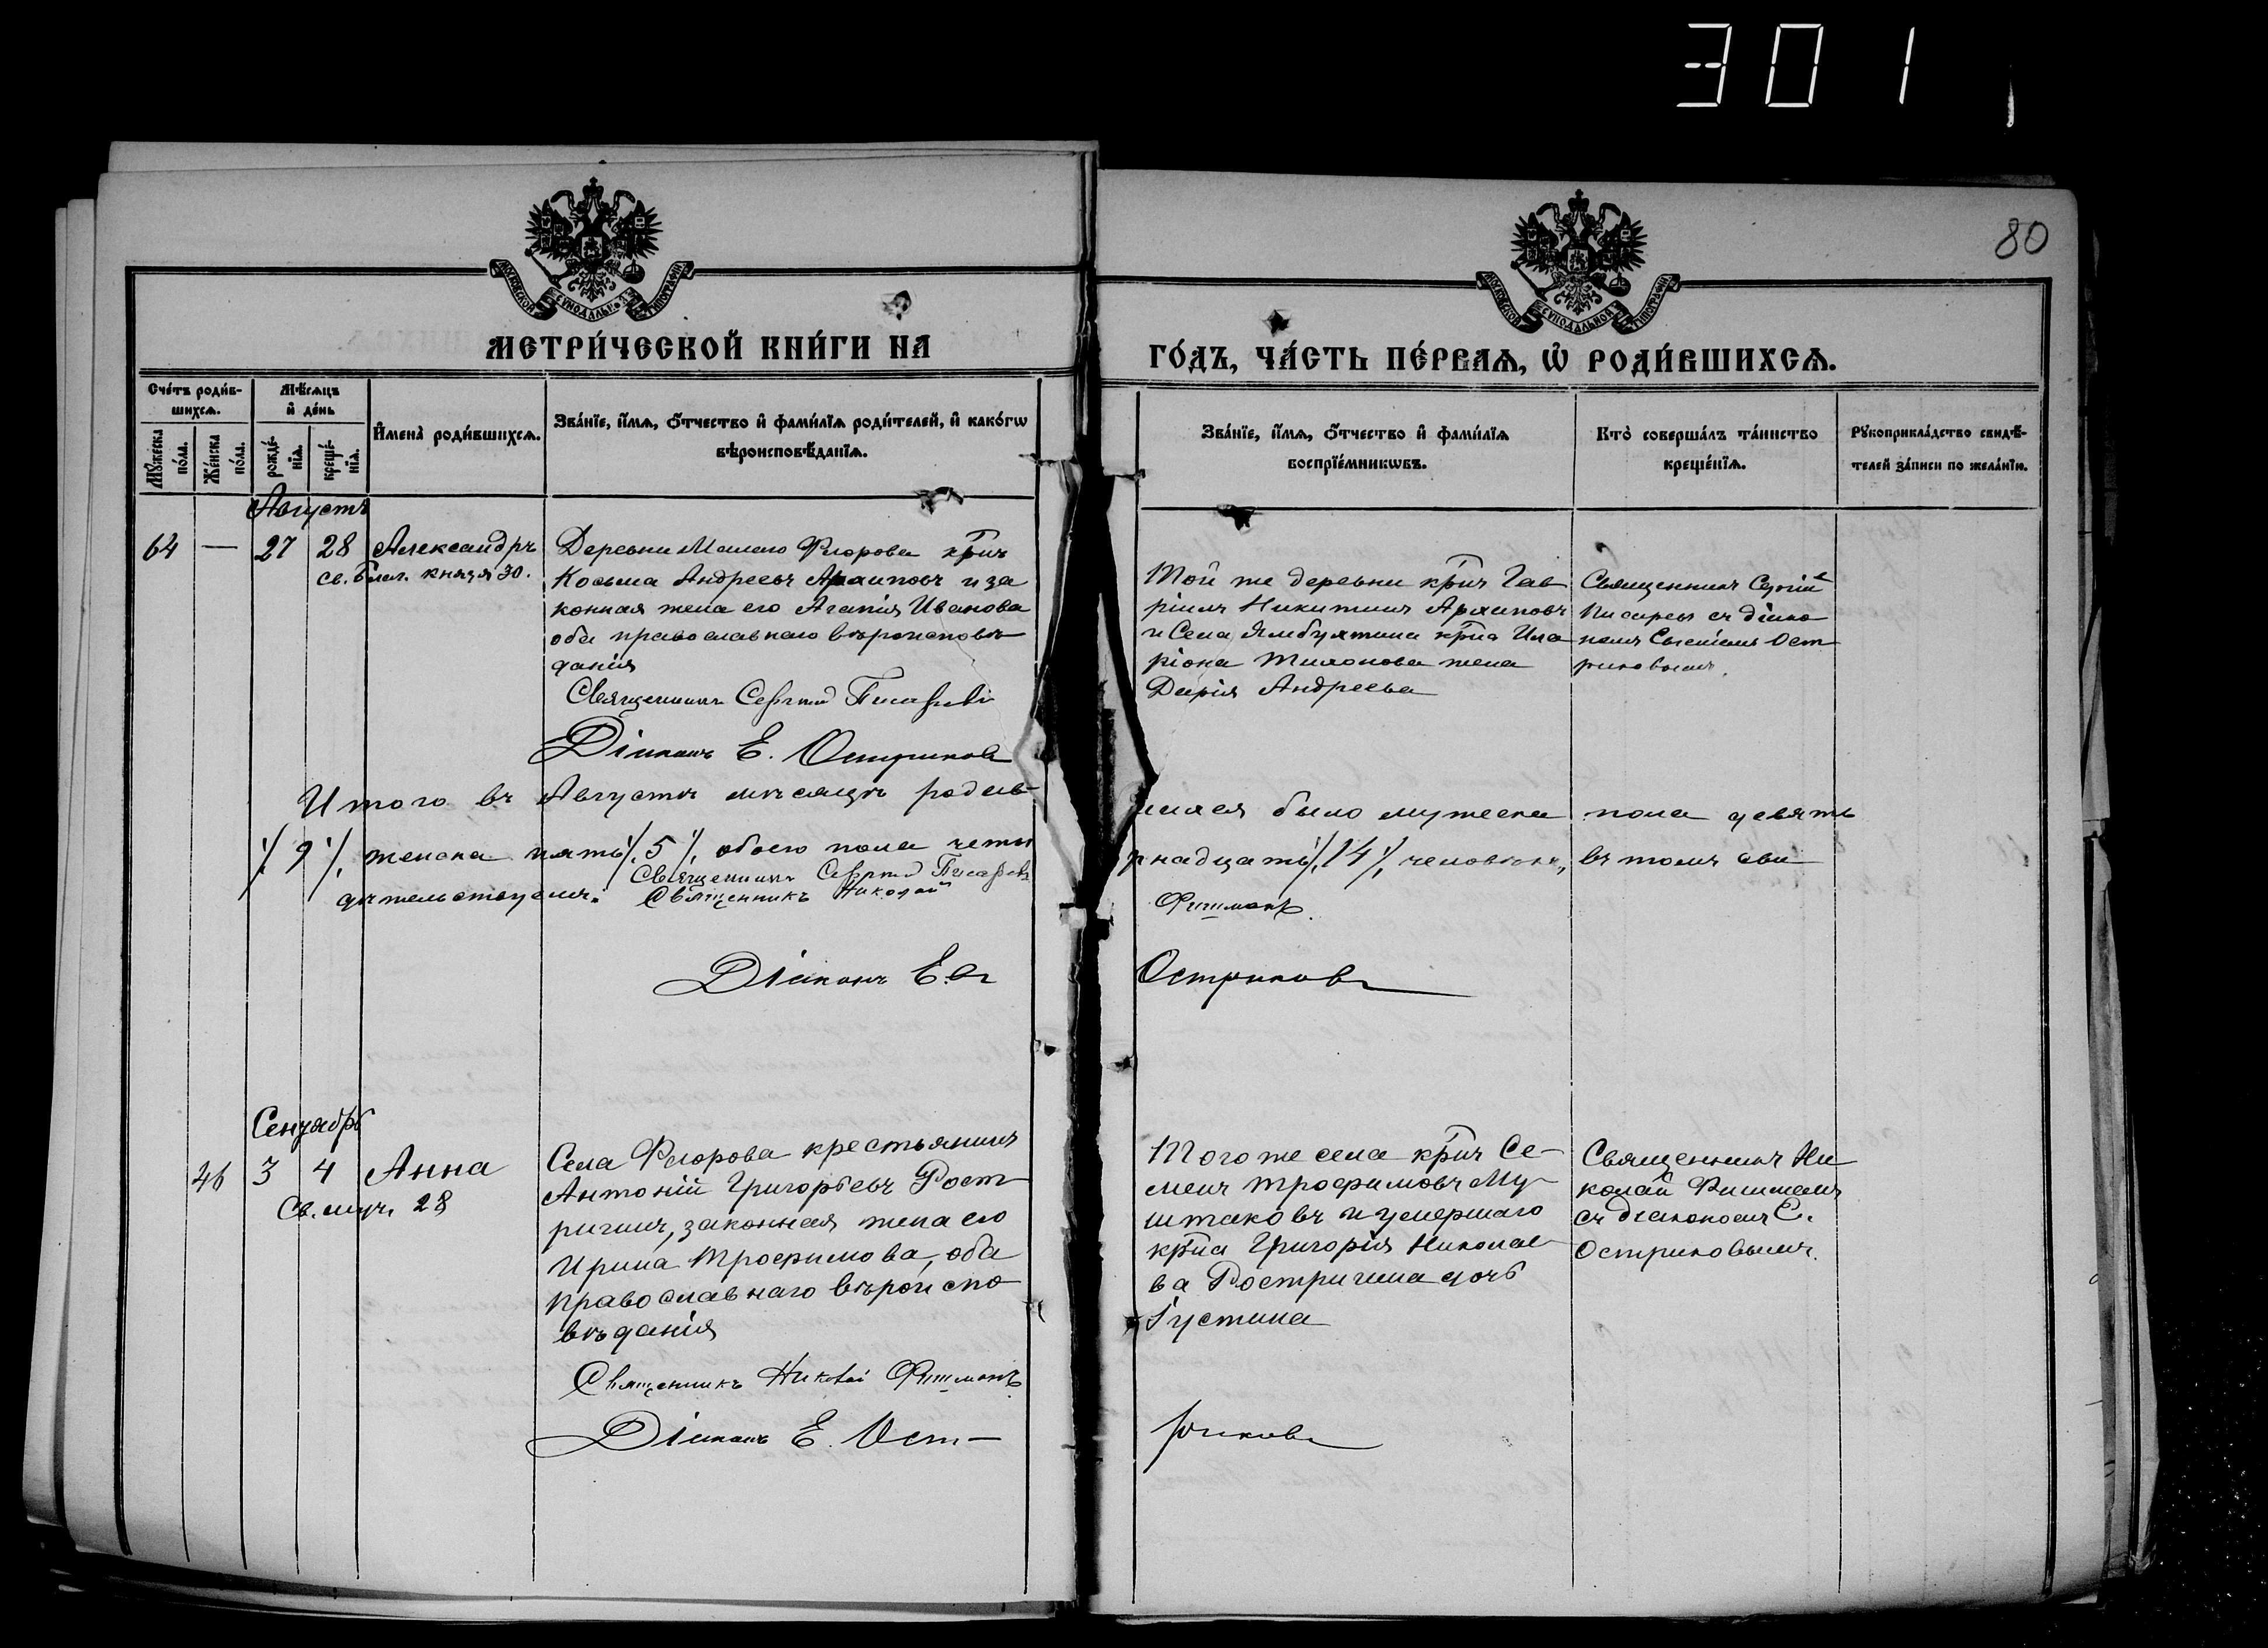 301
80
МОСКОВСКОЙ СѴНОДАЛЬНОЙ ТИПОГРАФІИ
МОСКОВСКОЙ СѴНОДАЛЬНОЙ ТИПОГРАФІИ
МЕТРИ́ЧЕСКОЙ КНИ́ГИ НА
ГО́ДЪ, ЧА́СТЬ ПЕ́РВАѦ, Ѡ҆ РОДИ́ВШИХСѦ.
Сче́тъ роди́в-
шихсѧ.
Мѣ́сѧцъ
и҆ де́нь
Мꙋ́жеска
по́ла.
Же́нска
по́ла.
рожде́-
нїѧ.
креще́-
нїѧ.
И҆мена̀ роди́вшихсѧ.
Зва́нїе, и҆́мѧ, ѻ҆́тчество и҆ фами́лїѧ роди́телей, и҆ како́гѡ
вѣроисповѣ́данїѧ.
Зва́нїе, и҆́мѧ, ѻ҆́тчество и҆ фами́лїѧ
воспрїе́мникѡвъ.
Кто̀ соверша́лъ та́инство
креще́нїѧ.
Рꙋкоприкла́дство свидѣ́-
телей за́писи по жела́нїю.
Августъ
64 — 27 28 Александръ
св. благ. князя 30.
Деревни Малаго Флорова кр̃нъ
Косьма Андреевъ Архиповъ и за
конная жена его Агапія Иванова
оба православнаго вѣроисповѣ
данія
Священникъ Сергій Писаревъ
Діаконъ Е. Остриковъ
Той же деревни кр̃нъ Гав
ріилъ Никитинъ Архиповъ
и Села Ямбухтина кр̃на Ила
ріона Тихонова жена
Дарія Андреева
Священникъ Сергій
Писаревъ съ діако
номъ Евгеніемъ Ост
риковымъ.
Итого въ Августѣ мѣсяцѣ родив-
шихся было мужеска пола девять
9, женска пять, 5, обоего пола четы
рнадцать, 14, человѣкъ, въ томъ сви
дѣтельствуемъ:
Священникъ Сергій Писаревъ
Священникъ Николай
Фишманъ.
Діаконъ Евг
Остриковъ
Сентябрь
46 3 4 Анна
Св. муч. 28
Села Флорова крестьянинъ
Антоній Григорьевъ Рост
ригинъ, законная жена его
Ирина Трофимова, оба
православнаго вѣроиспо
вѣданія
Священникъ Николай Фишманъ
Діаконъ Е. Ост-
риковъ
Того же села кр̃нъ Се-
менъ Трофимовъ Му-
штаковъ и умершаго
кр̃на Григорія Николае
ваРостригина дочь
Іустина
Священникъ Ни
колай Фишманъ
съ діакономъ Е.
Остриковымъ.